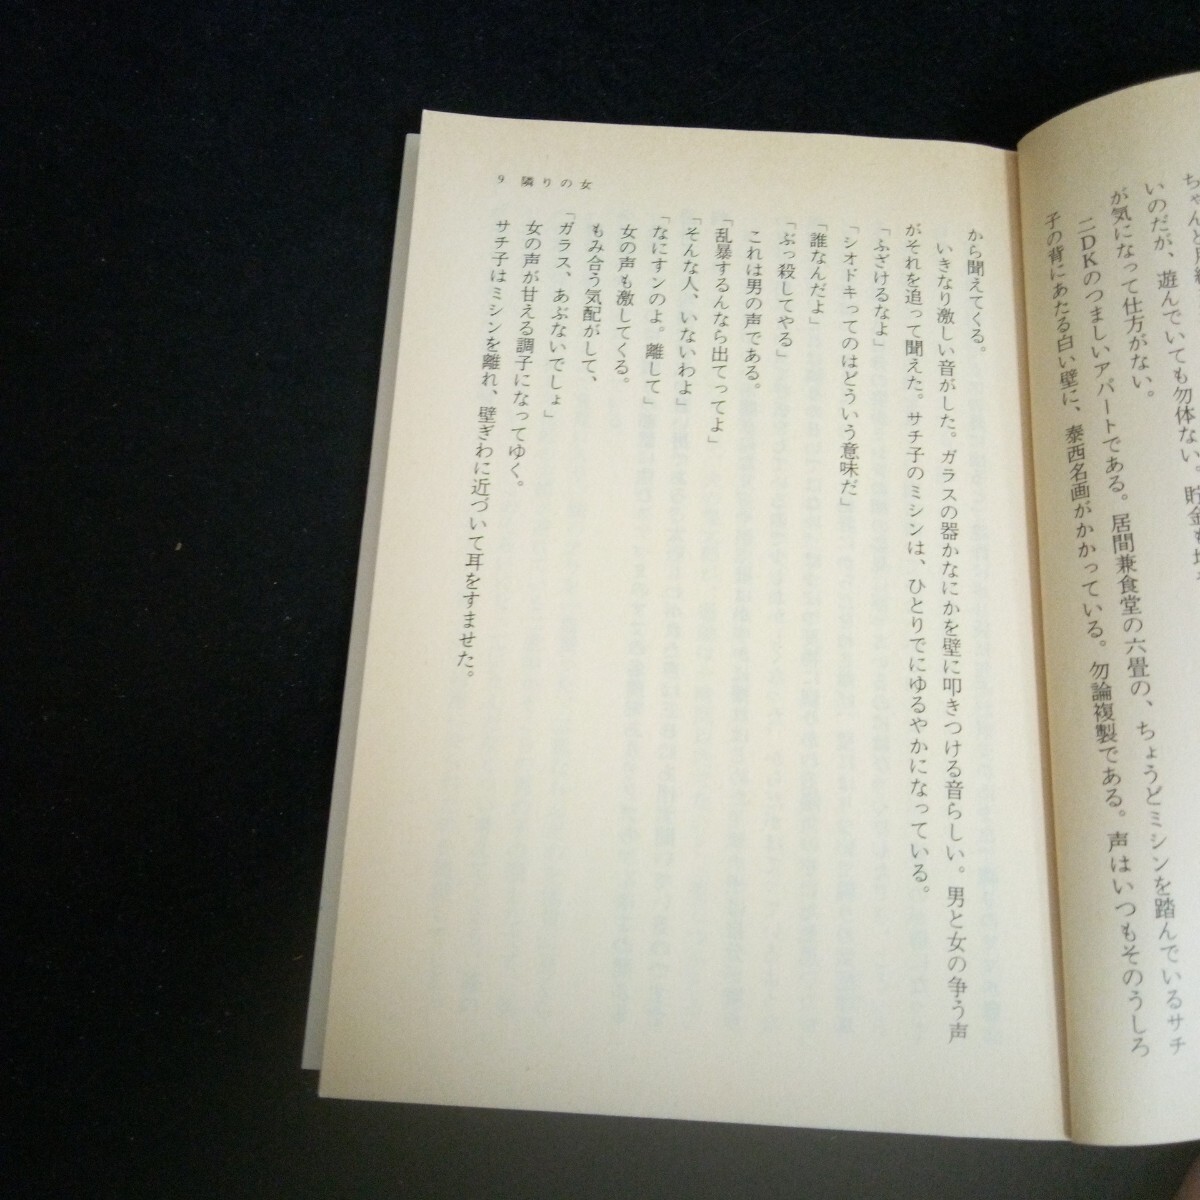 いのだが、遊んでいても勿体ない。貯金も
が気になって仕方がない。
二DKのつましいアパートである。居間兼食堂の六畳の、ちょうどミシンを踏んでいるサチ
子の背にあたる白い壁に、泰西名画がかかっている。勿論複製である。声はいつもそのうしろ
9 隣りの女
から聞えてくる。
いきなり激しい音がした。ガラスの器かなにかを壁に叩きつける音らしい。男と女の争う声
がそれを追って聞えた。サチ子のミシンは、ひとりでにゆるやかになっている。
「ふざけるなよ」
「シオドキってのはどういう意味だ」
「誰なんだよ」
「ぶっ殺してやる」
これは男の声である。
「乱暴するんなら出てってよ」
「そんな人、いないわよ」
「なにすンのよ。離して」
女の声も激してくる。
もみ合う気配がして、
「ガラス、あぶないでしょ」
女の声が甘える調子になってゆく。
サチ子はミシンを離れ、壁ぎわに近づいて耳をすませた。